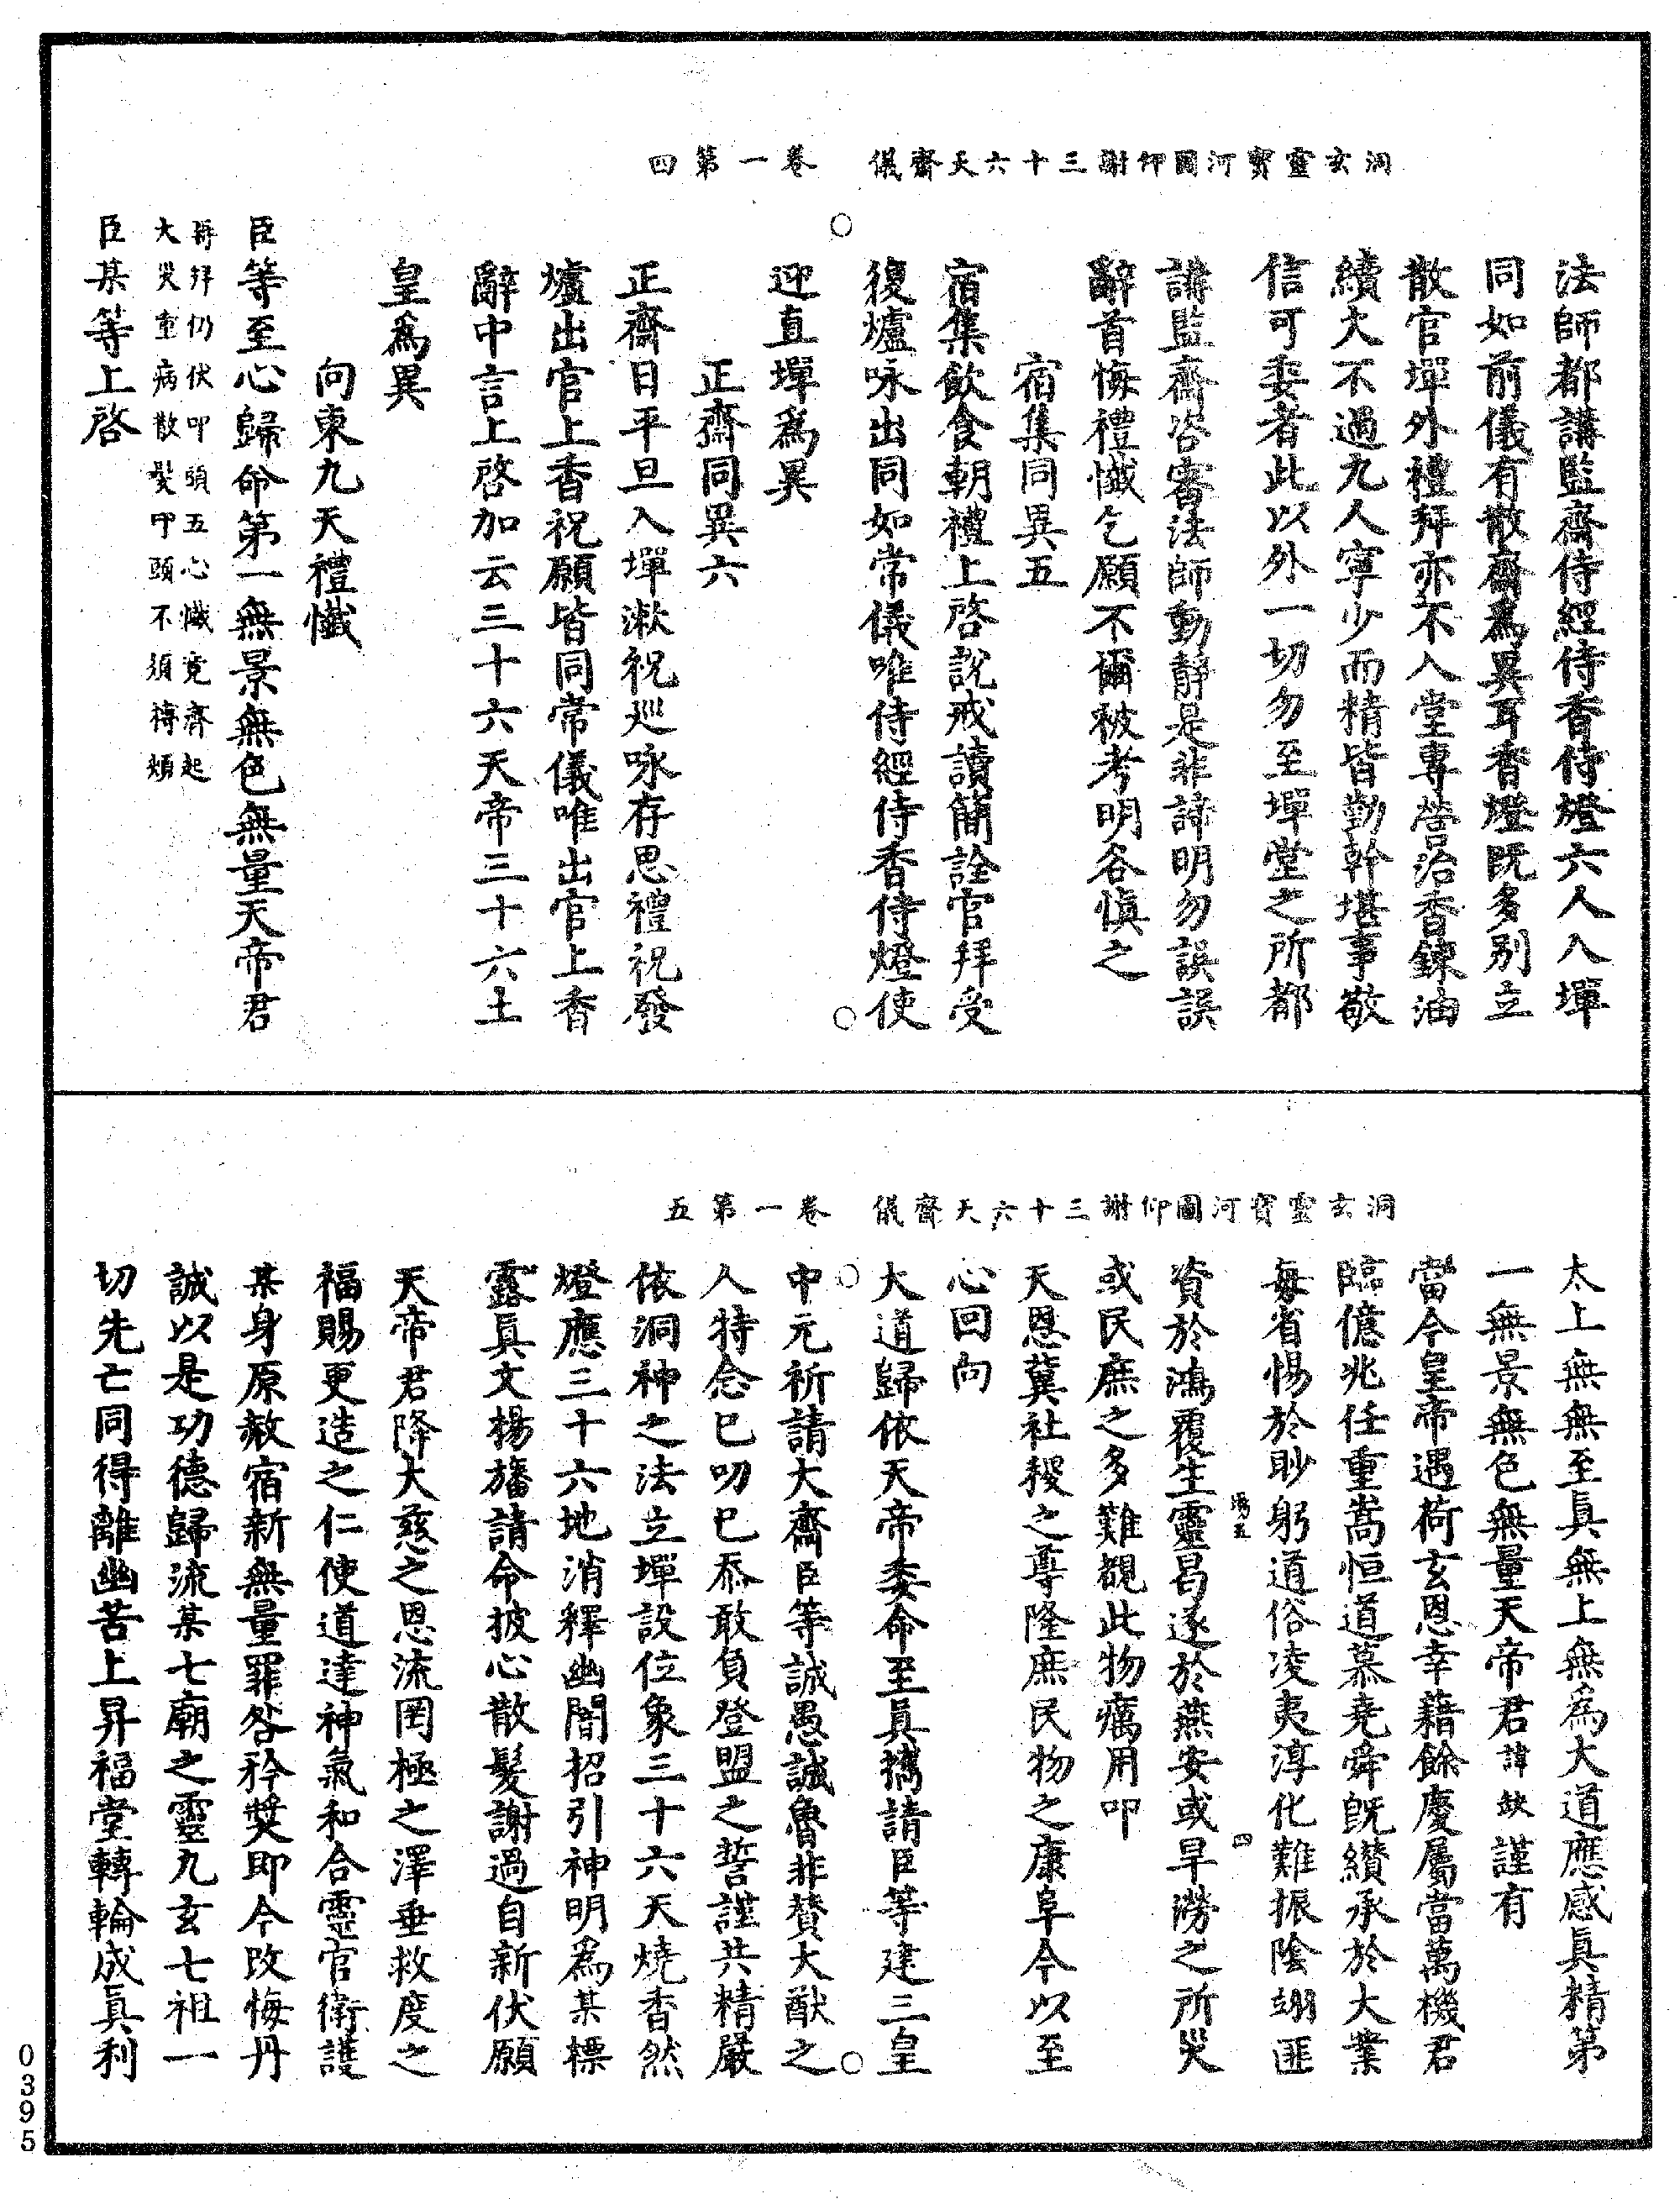 洞玄靈寶河圖仰謝三十六天齋儀 卷一第四
法師都講監齋侍經侍香侍燈六人入墠
同如前儀有散齋為異耳香燈既多別立
散官墠外禮拜亦不入堂專營治香鍊油
續大不過九人寧少而精皆勤幹堪事敬
信可委者此以外一切勿至墠堂之所都
講監齋咨審法師動靜是非諦明勿誤誤
辭首悔禮懺乞願不爾被考明各慎之
宿集同異五
宿集飲食朝禮上啓說戒讀簡詮官拜受
復爐咏出同如常儀唯侍經侍香侍燈使
迎直墠為異
正齋同異六
正齋日平旦入墠漱祝巡咏存思禮祝發
爐出官上香祝願皆同常儀唯出官上香
辭中言上啓加云三十六天帝三十六土
皇為異
向東九天禮懺
臣等至心歸命第一無景無色無量天帝君
再拜仍伏叩頭五心懺竟齊起
大災重病散髮叩頭不須搏頰
臣某等上啓
洞玄靈寶河圖仰謝三十六天齋儀 卷一第五
太上無無至真無上無為大道應感真精第
一無景無色無量天帝君諱缺謹有
當今皇帝遇荷玄恩幸藉餘慶屬當萬機君
臨億兆任重嵩恒道慕堯舜既纘承於大業
每省惕於眇躬道俗凌夷淳化難振陰翊匪
資於鴻覆生靈曷遂於燕安或旱澇之所災
四
或民庶之多難覩此物癘用叩
天恩冀社稷之尊隆庶民物之康阜今以至
心回向
大道歸依天帝委命至真擕請臣等建三皇
中元祈請大齋臣等誠愚誠魯非贊大猷之
人特念已叨已忝敢負登盟之誓謹共精嚴
依洞神之法立墠設位象三十六天燒香然
燈應三十六地消釋幽闇招引神明為某標
露真文楊旛請命披心散髮謝過自新伏願
天帝君降大慈之恩流罔極之澤垂救度之
福賜更造之仁使道達神氣和合靈官衛護
某身原赦宿新無量罪咎矜獎即今改悔丹
誠以是功德歸流某七廟之靈九玄七祖一
切先亡同得離幽苦上昇福堂轉輪成真利
0395